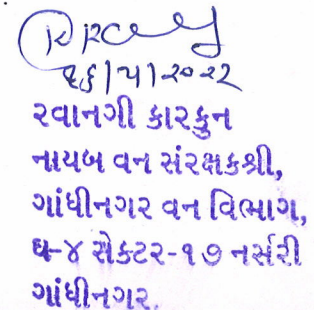 ૧૬/૫/૨૦૨૨
રવાનગી કારકુન
નાયબ વન સંરક્ષકશ્રી,
ગાંધીનગર વન વિભાગ,
ઘ-૪ સેક્ટર-૧૭ નર્સરી
ગાંધીનગર.